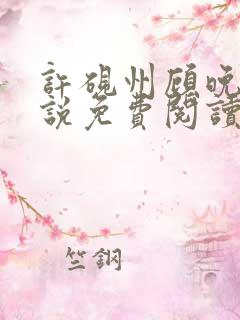 許硯州顧晚
說免費閱讀
竺鋼